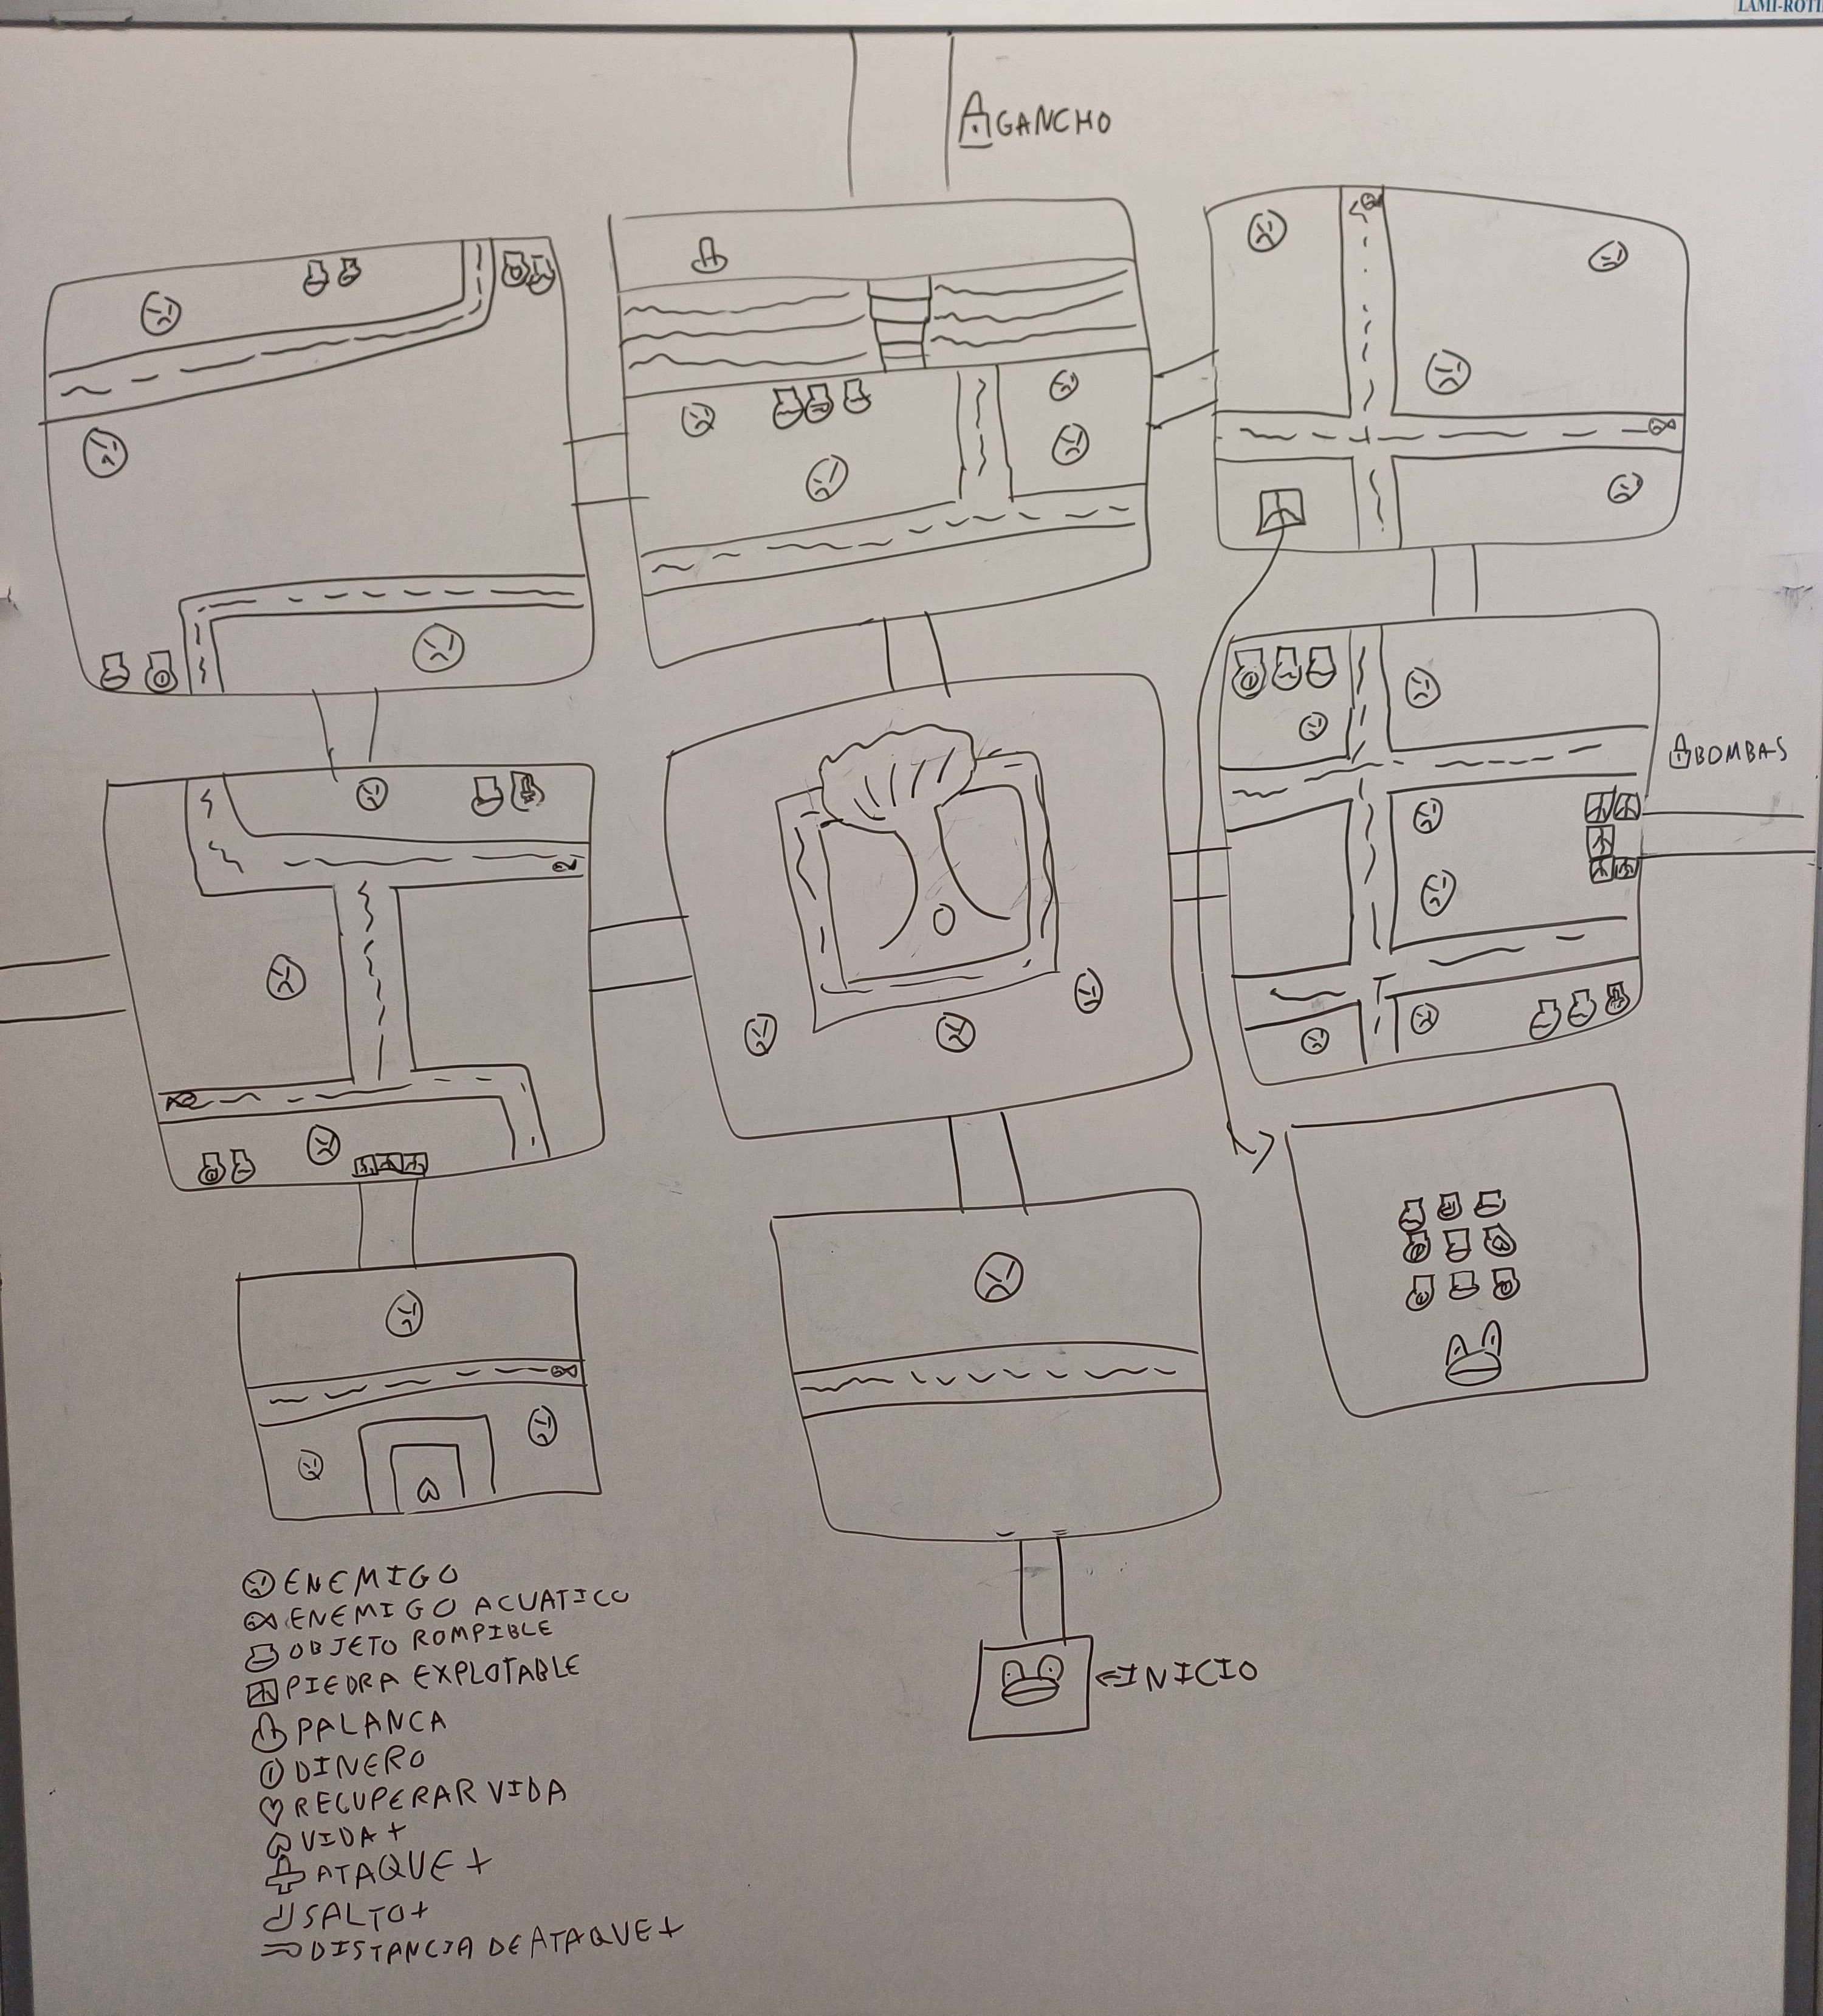 LAMI-ROTI
GANCHO
BOMBAS
←INICIO
ENEMIGO
ENEMIGO ACUATICO
OBJETO ROMPIBLE
PIEDRA EXPLOTABLE
PALANCA
DINERO
RECUPERAR VIDA
VIDA +
ATAQUE +
SALTO+
DISTANCIA DE ATAQUE+